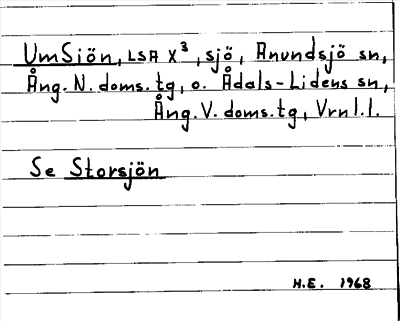 UmSiön, LSA X³, sjö, Anundsjö sn,
Ång. N. doms. tg, o. Ådals-Lidens sn,
Ång. V. doms. tg, Vrnl.l.
Se Storsjön
H.E. 1968